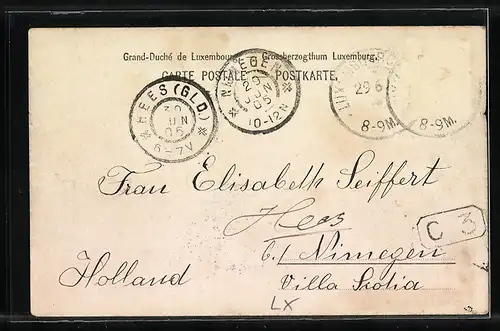 Grand-Duché de Luxembourg. Grossherzogthum Luxemburg.
CARTE POSTALE POSTKARTE.
NIJMEGEN
29
JUN
05
10-12N
HEES (GLD.)
30
JUN
05
6-7V
29 6
8-9M.
8-9M.
Frau Elisabeth Seiffert
Hees
b./ Nimegen
Villa Scotia
Holland
C 3
LX